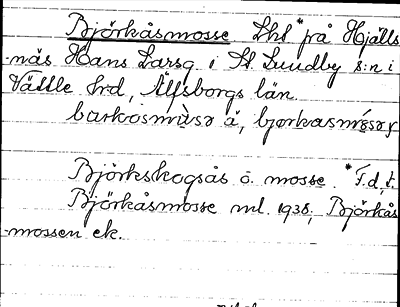 Björkåsmosse Lhs *på Hjälls
-näs Hans Larsg. i St. Lundby s:n i
Vättle hd, Älfsborgs län.
barkosmùsɘ å, bjorkasmósɘ y
Björkskogsås o. mosse. *F.d.t.
Björkåsmosse ml. 1938, Björkås
-mossen ek.